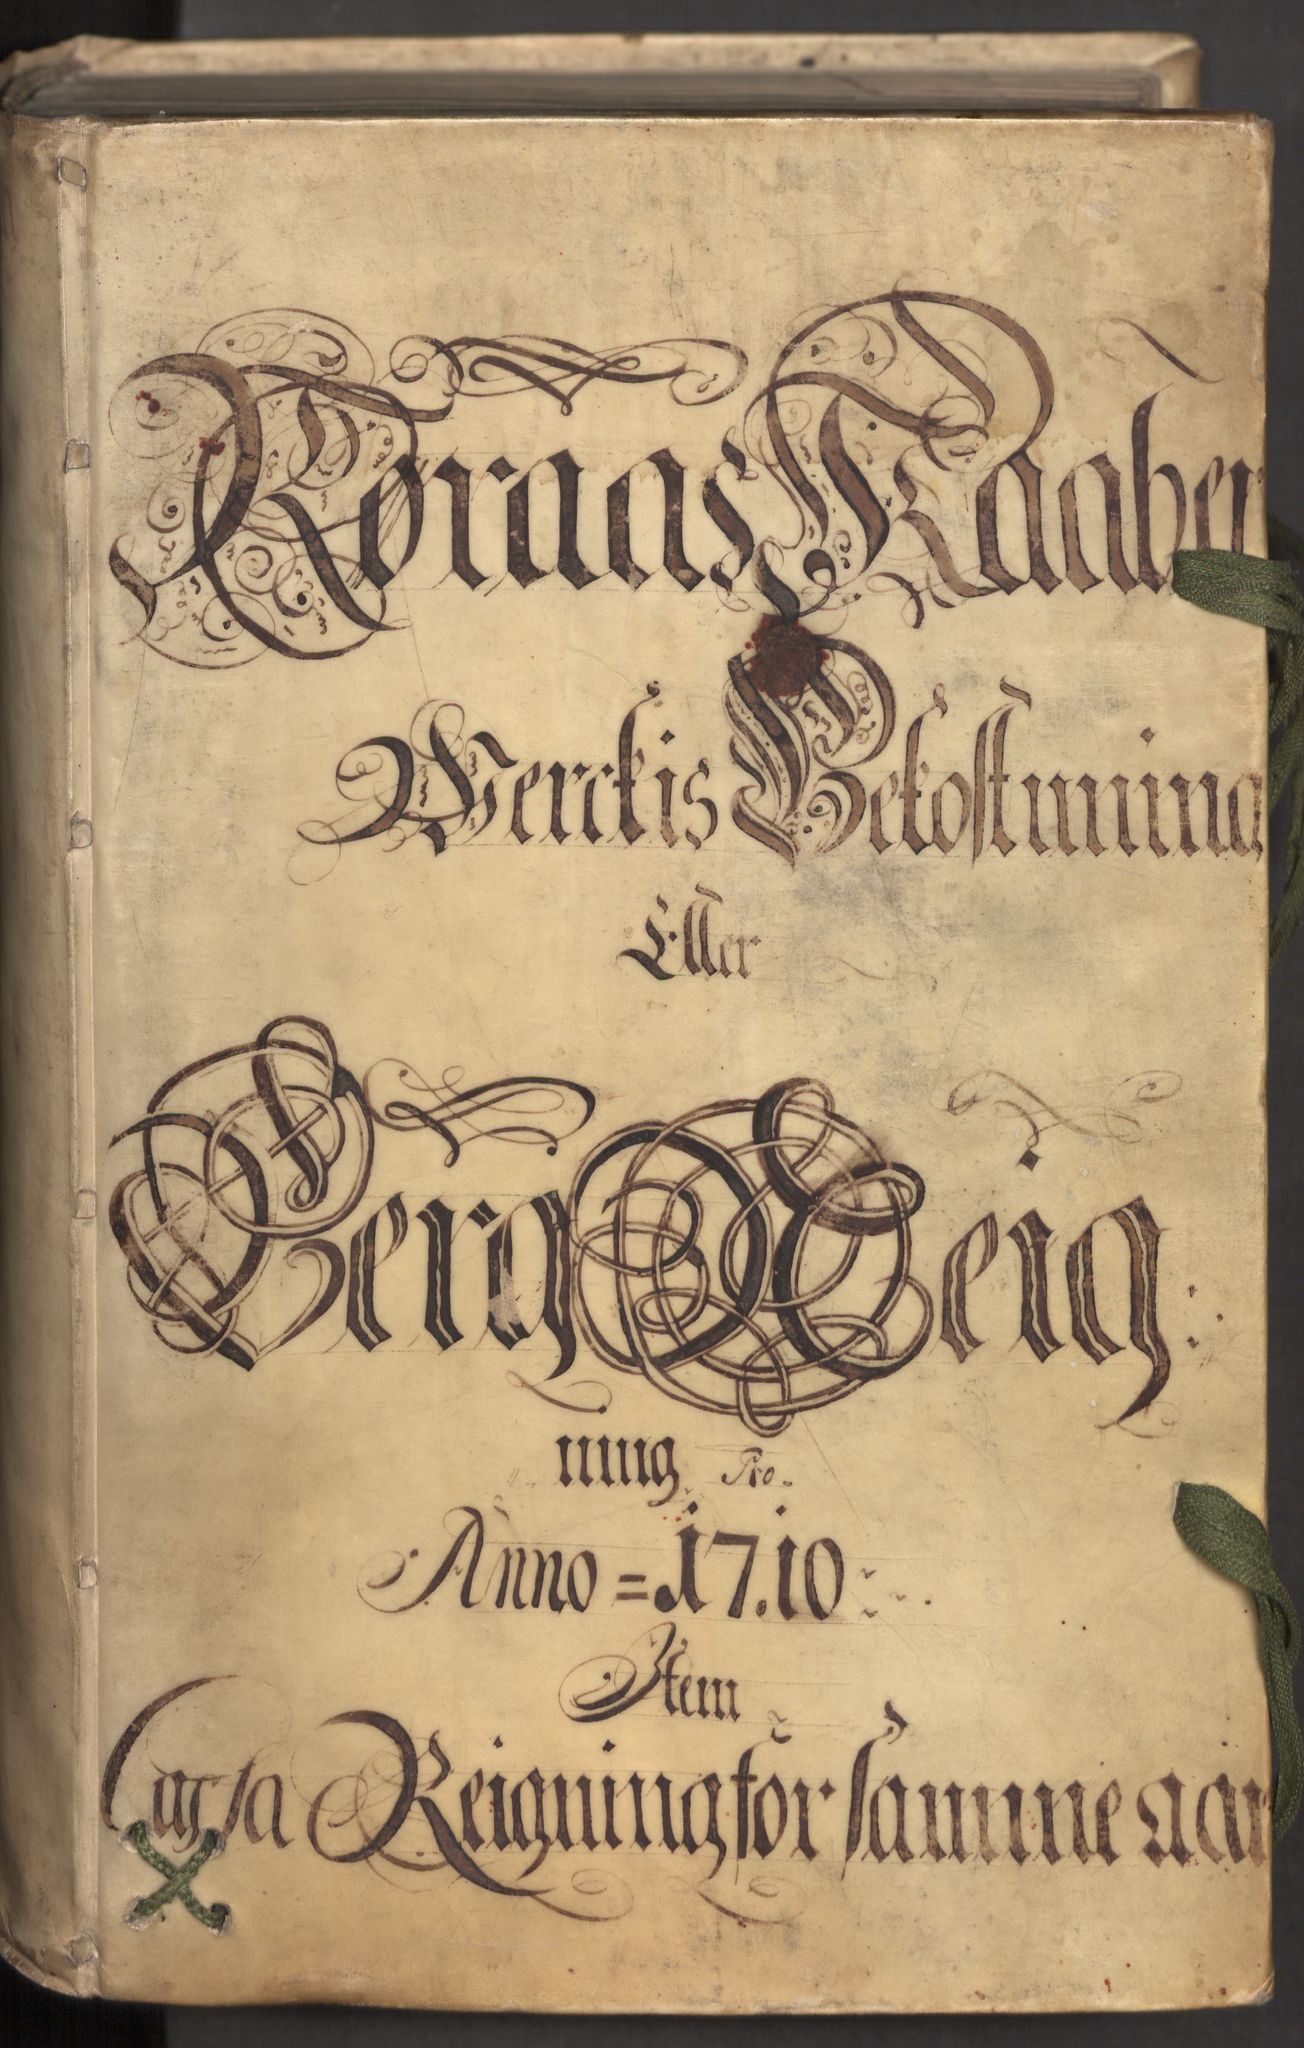 Røraas Kaaber
Werckis Bekostnning
Eller
Berg Reig
ning Pro.
Anno = 17.10
Item
Cassa Reigning for samme aar